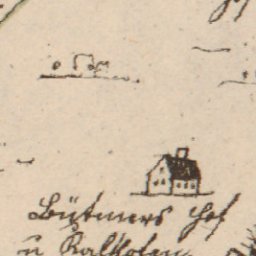 Bütmers Hof
u Kalkofen